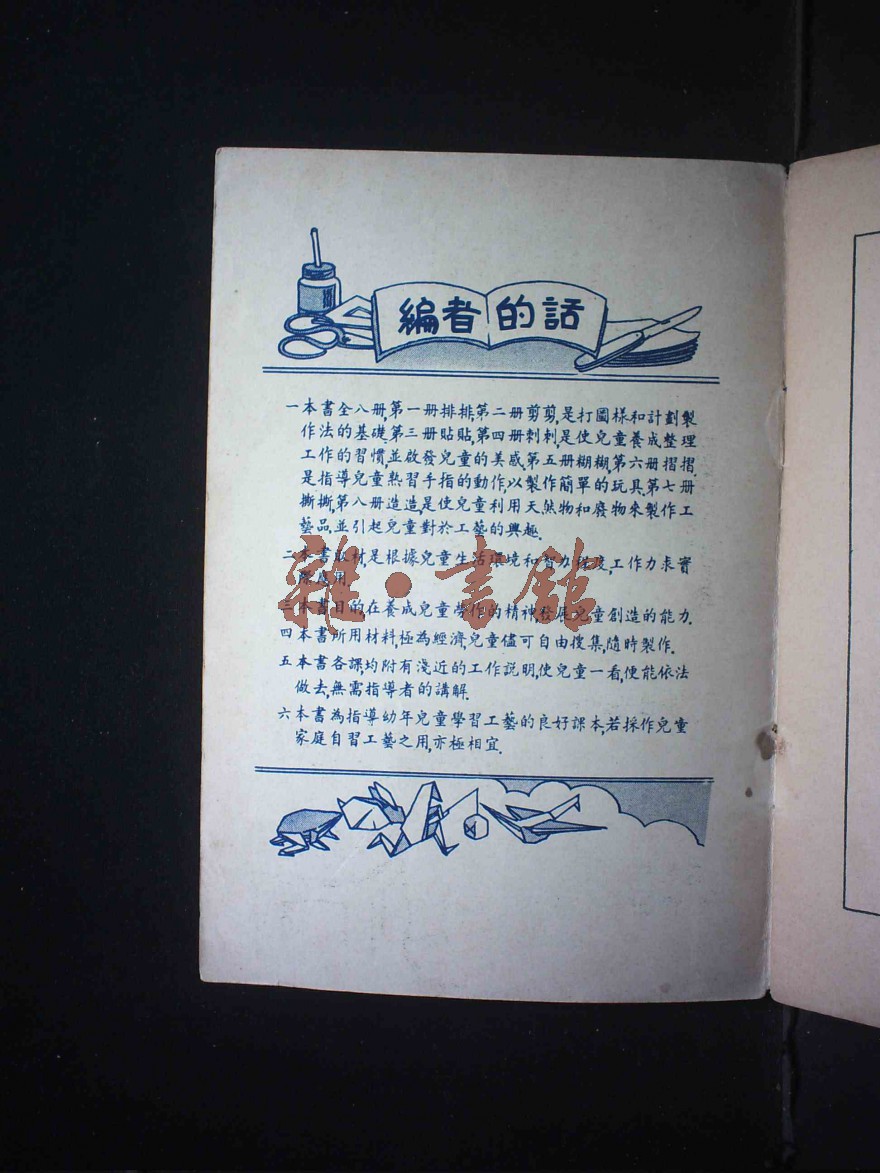 編者的話
一本書全八册,第一册排排,第二册剪剪,是打圖樣和計劃製
作法的基礎.第三册貼貼,第四册刺刺,是使兒童養成整理
工作的習慣,並啟發兒童的美感.第五册糊糊,第六册摺摺.
是指導兒童熟習手指的動作,以製作簡單的玩具.第七册
撕撕,第八册造造,是使兒童利用天然物和廢物來製作工
藝品,並引起兒童對於工藝的興趣.
二本書取材是根據兒童生活環境和智力程度,工作力求實
際應用.
三本書目的在養成兒童勞作的精神,發展兒童創造的能力.
四本書所用材料,極為經濟,兒童儘可自由搜集,隨時製作.
五本書各課,均附有淺近的工作説明,使兒童一看,便能依法
做去,無需指導者的講解.
六本書為指導幼年兒童學習工藝的良好課本,若採作兒童
家庭自習工藝之用,亦極相宜.
雜·書館